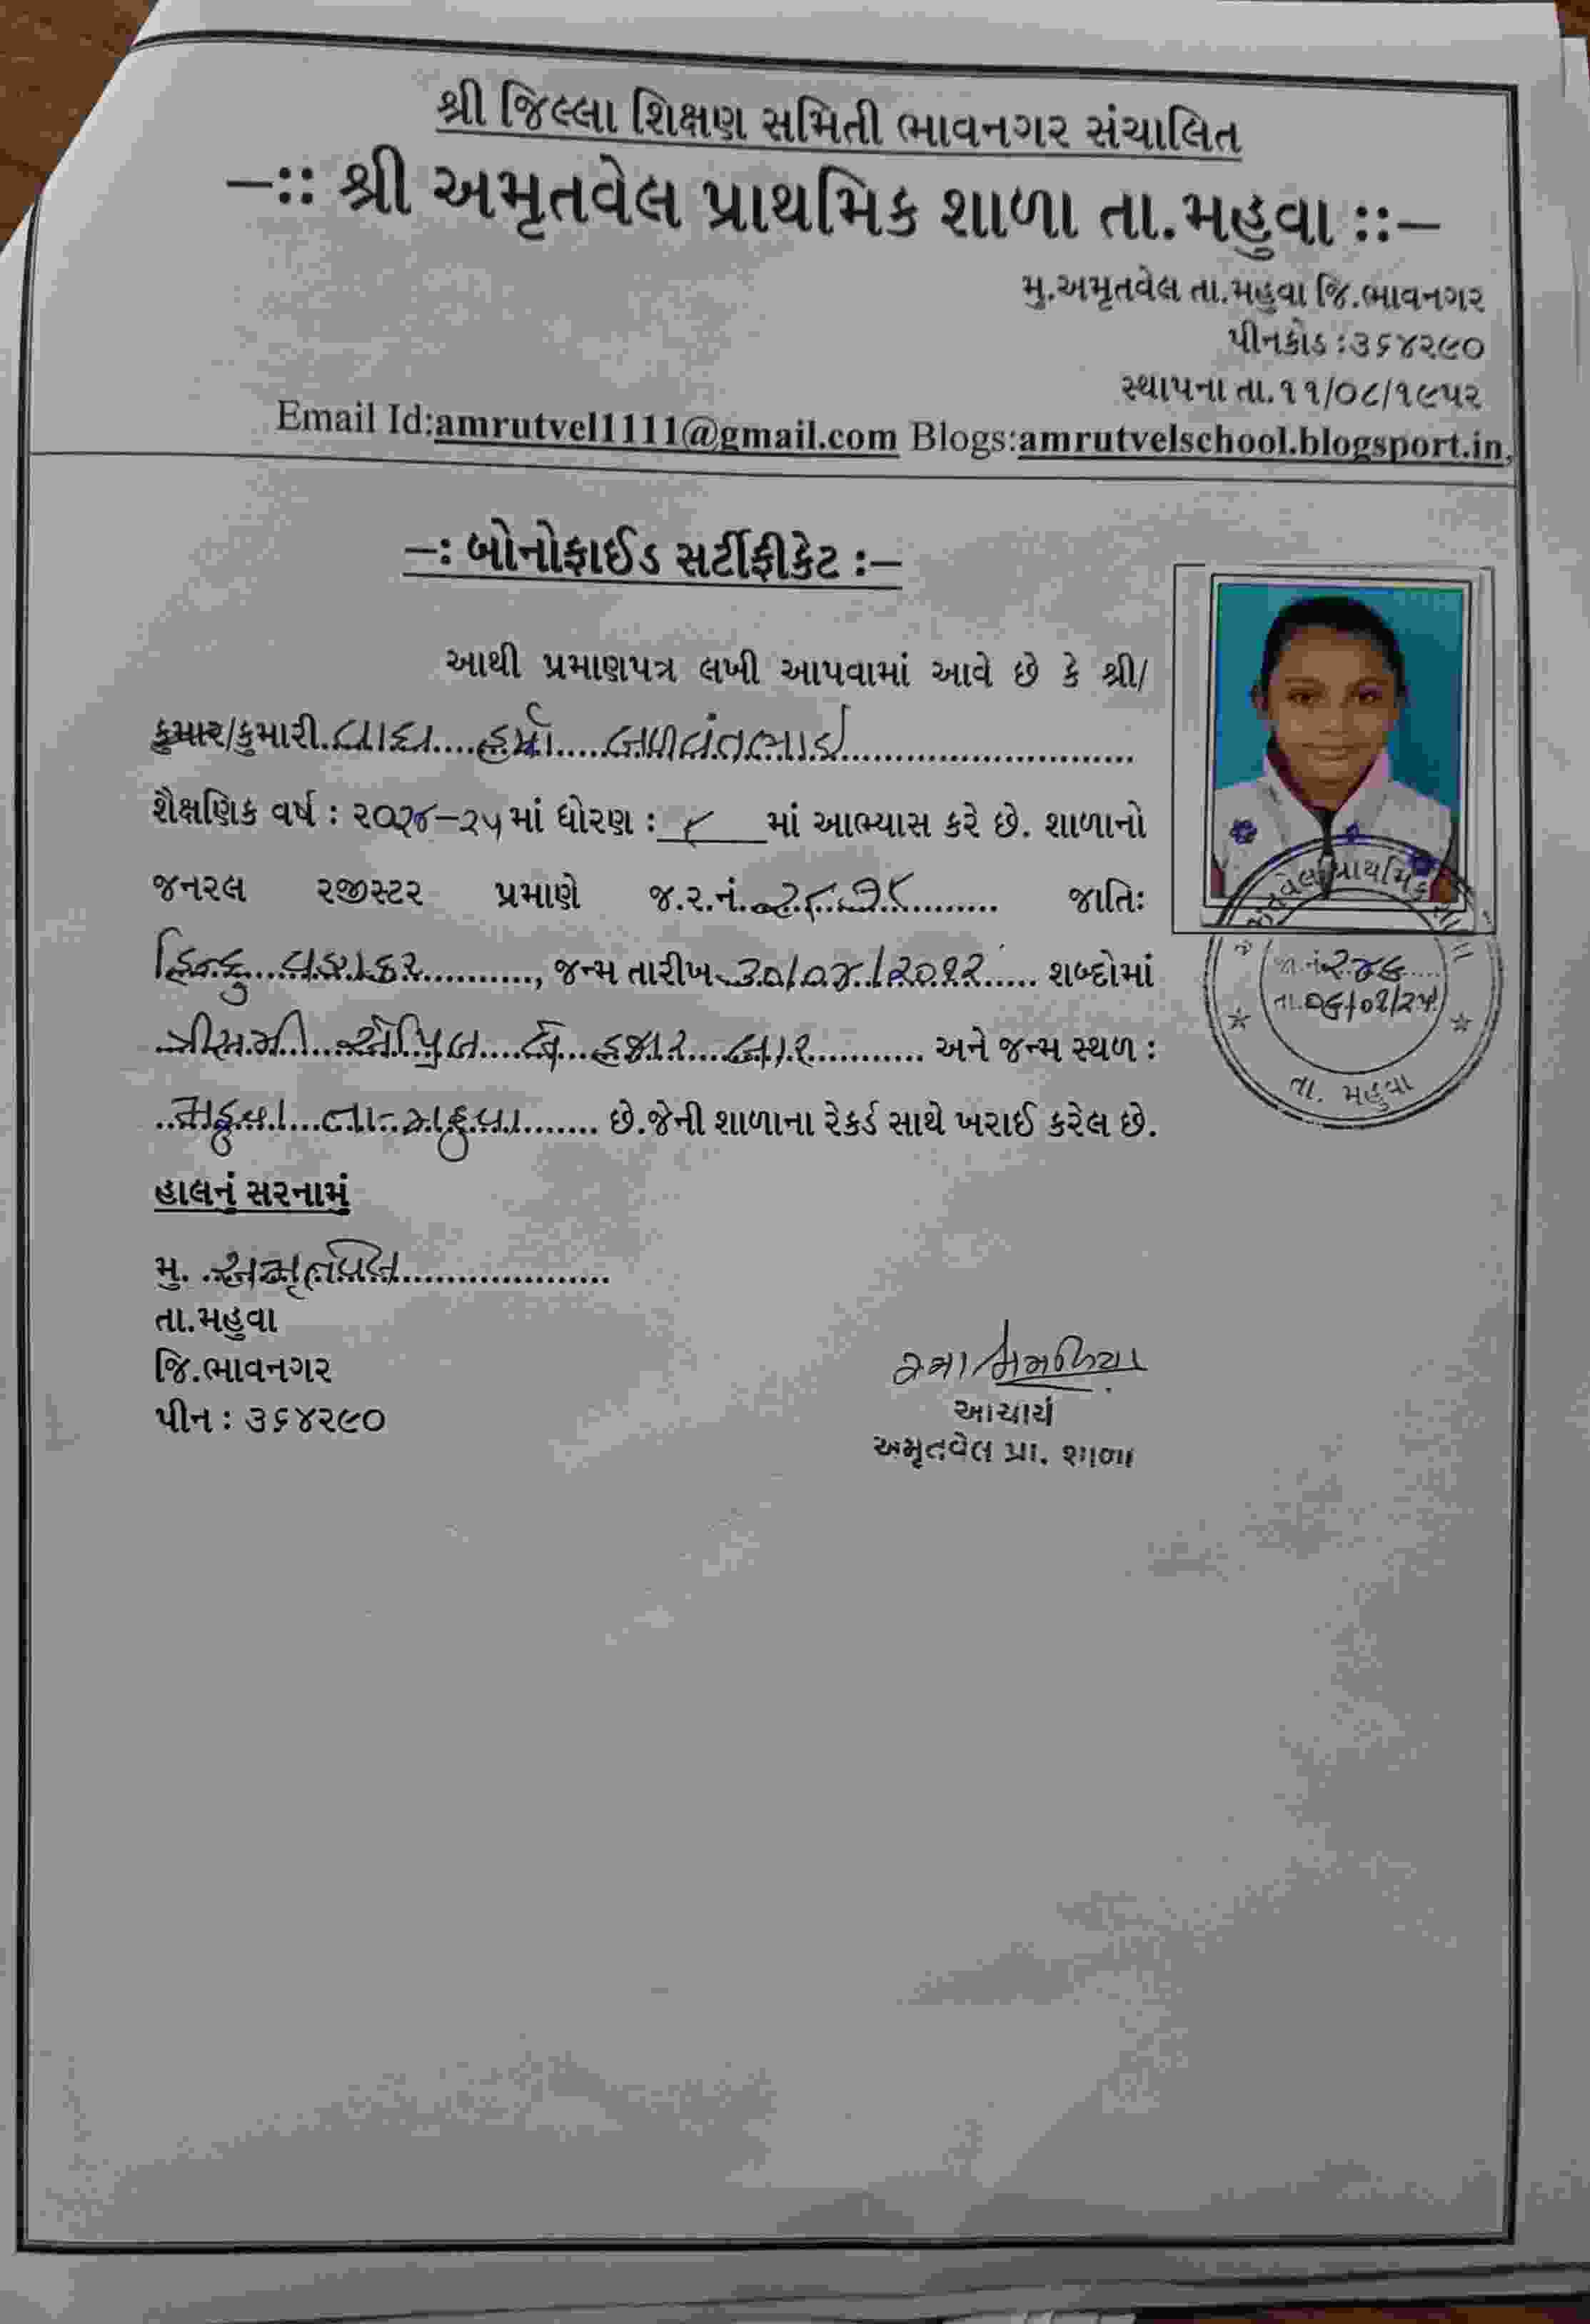 શ્રી જિલ્લા શિક્ષણ સમિતી ભાવનગર સંચાલિત
-:: શ્રી અમૃતવેલ પ્રાથમિક શાળા તા.મહુવા ::-
મુ.અમૃતવેલ તા.મહુવા જિ.ભાવનગર
પીનકોડ :૩૬૪૨૯૦
સ્થાપના તા.૧૧/૦૮/૧૯૫૨
Email Id:amrutvel1111@gmail.com Blogs:amrutvelschool.blogsport.in,
-: બોનોફાઈડ સર્ટીફીકેટ :-
આથી પ્રમાણપત્ર લખી આપવામાં આવે છે કે શ્રી/
કુમાર/કુમારી. વાઘ હર્ષા બળવંતભાઈ
શૈક્ષણિક વર્ષ : ૨૦૨૪-૨૫ માં ધોરણ : ૮ માં આભ્યાસ કરે છે. શાળાનો
જનરલ રજીસ્ટર પ્રમાણે જ.ર.નં. જાતિઃ
હિન્દુ વણકર, જન્મ તારીખ ૩૦/૦૪/૨૦૧૨ શબ્દોમાં
ત્રીસમી એપ્રિલ બે હજાર બાર અને જન્મ સ્થળ :
મહુવા તા-મહુવા છે.જેની શાળાના રેકર્ડ સાથે ખરાઈ કરેલ છે.
જા.નં ૨૪૬
તા.૦૬/૦૧/૨૫
તા. મહુવા
હાલનું સરનામું
મુ. અમૃતવેલ
તા.મહુવા
જિ.ભાવનગર
પીન : ૩૬૪૨૯૦
આચાર્ય
અમૃતવેલ પ્રા. શાળા